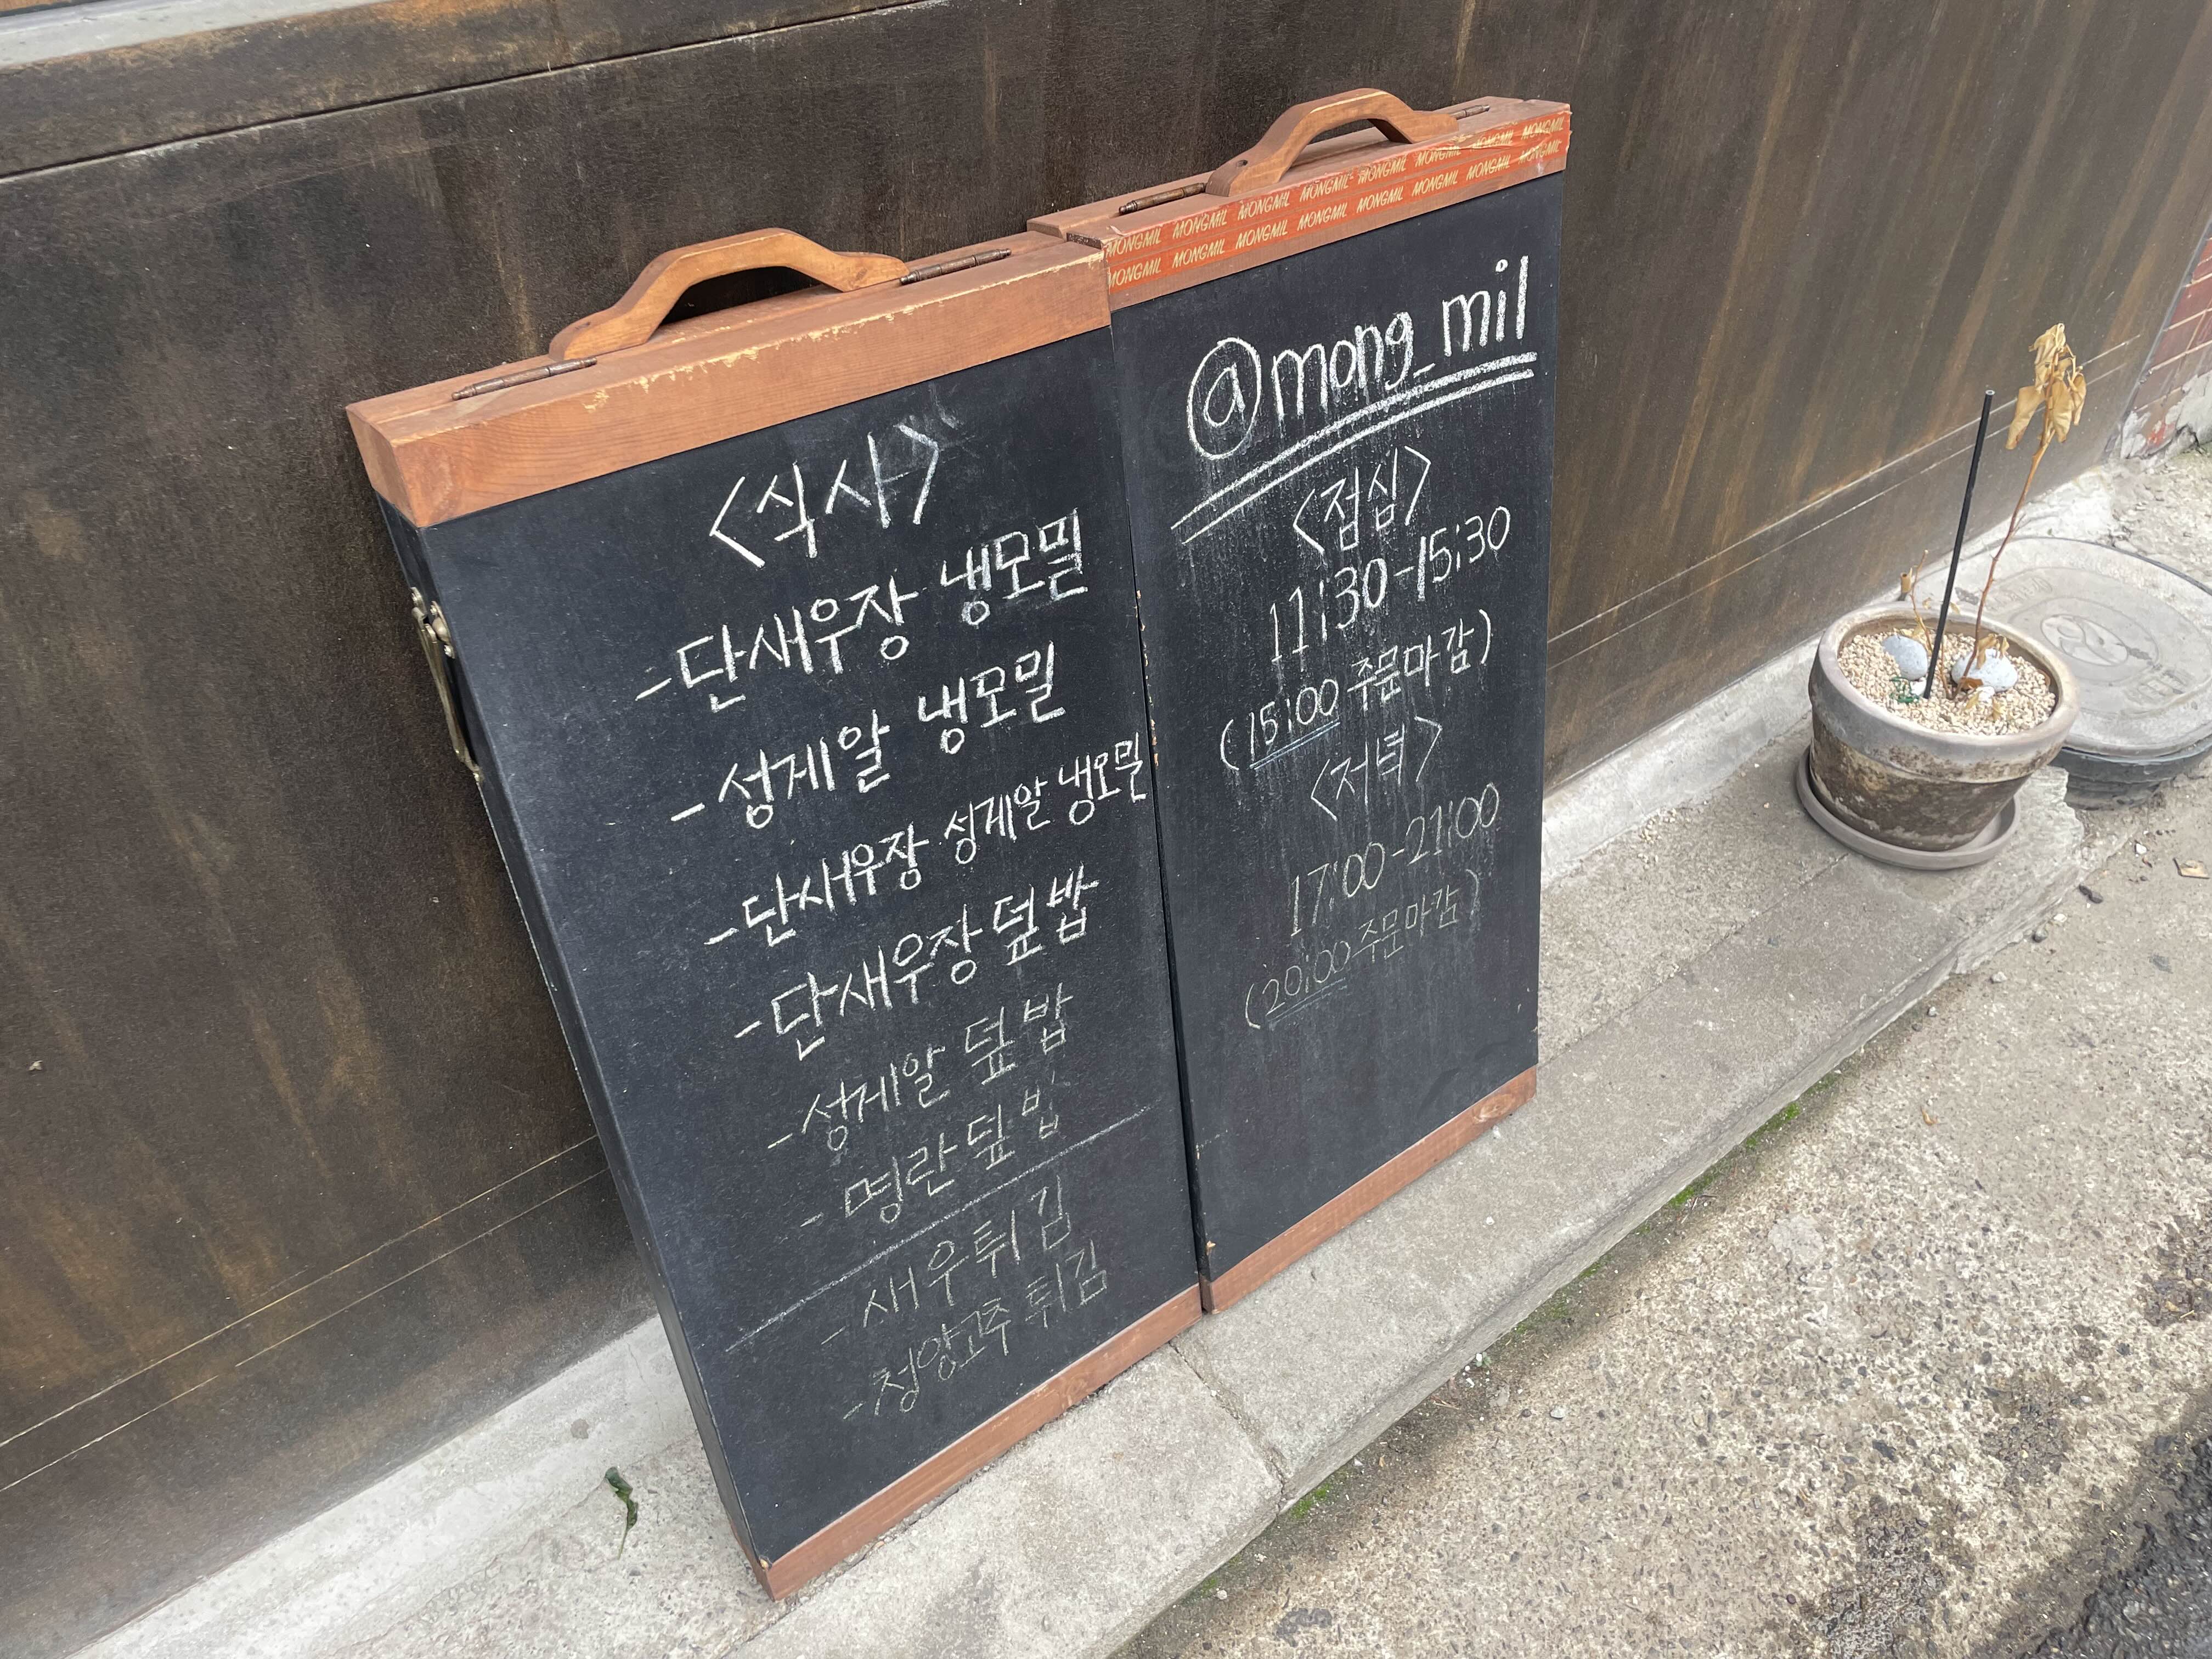 <식사>
-단새우장 냉모밀
-성게알 냉모밀
-단새우장 성게알 냉모밀
-단새우장 덮밥
-성게알 덮밥
-명란덮밥
-새우튀김
-청양고추튀김
MONGMIL MONGMIL MONGMIL MONGMIL MONGMIL MONGMIL MONGMIL MONGMIL
MONGMIL MONGMIL MONGMIL MONGMIL MONGMIL MONGMIL MONGMIL MONGMIL
@mong_mil
<점심>
11:30-15:30
(15:00 주문마감)
<저녁>
17:00-21:00
(20:00 주문마감)